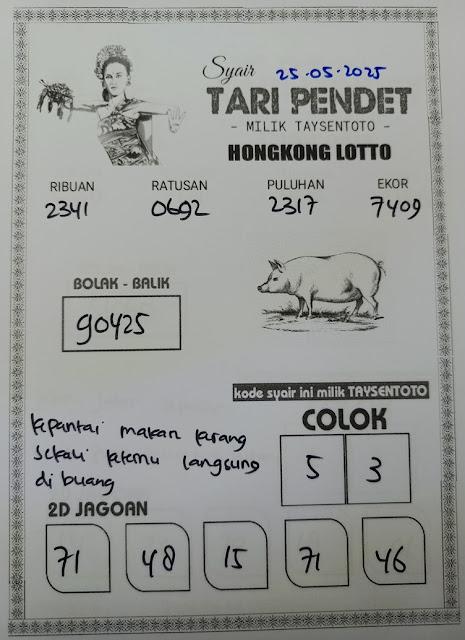 Syair 25.05.2025
TARI PENDET
- MILIK TAYSENTOTO -
HONGKONG LOTTO
RIBUAN RATUSAN PULUHAN EKOR
2341 0692 2317 7409
BOLAK - BALIK
90425
kode syair ini milik TAYSENTOTO
COLOK
5 3
kepantai makan karang
sekali ketemu langsung
di buang
2D JAGOAN
71 48 15 71 46